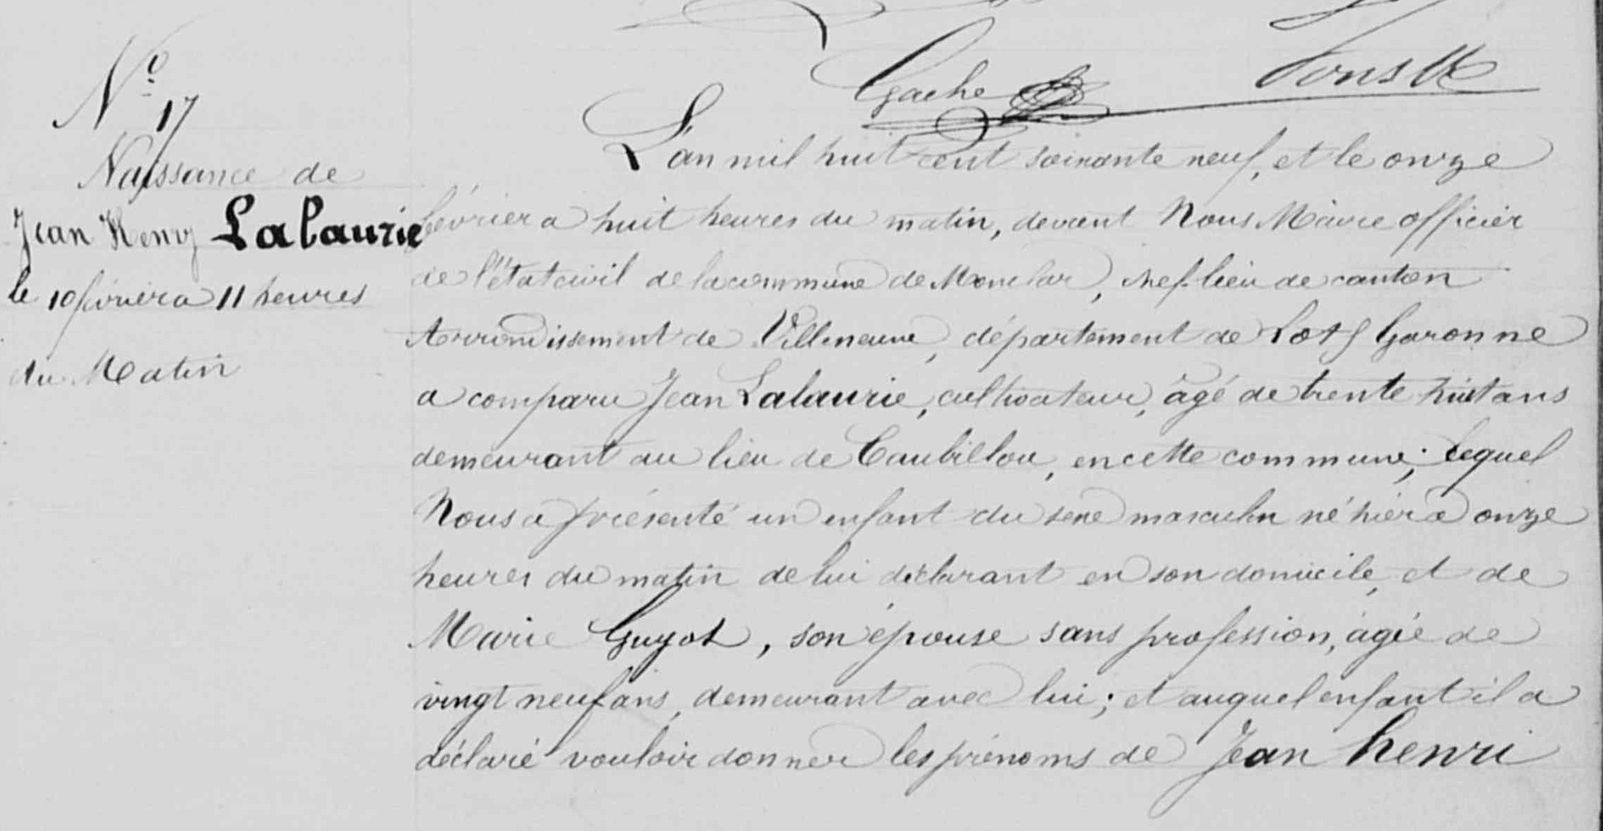 Gache
N° 17
Naissance de
Jean Henry Lalaurie
le 10 février a 11 heures
du Matin
L'an mil huit cent soixante neuf, et le onze
février a huit heures du matin, devant Nous Maire officier
de l'état civil de la commune de Monclar, chef-lieu de canton
Arrondissement de Villeneuve, département de Lot & Garonne
a comparu Jean Lalaurie, cultivateur, âgé de trente huit ans
demeurant au lieu de Caubillou, en cette commune; lequel
Nous a présenté un enfant du sexe masculin né hier a onze
heures du matin de lui déclarant en son domicile, et de
Marie Guyot, son épouse sans profession, âgée de
vingt neuf ans, demeurant avec lui; et auquel enfant il a
déclaré vouloir donner les prénoms de Jean henri